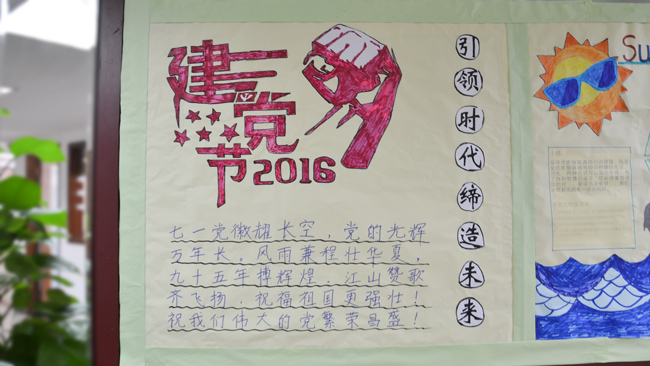 建
党
节2016
引领时代缔造未来
七一党徽耀长空，党的光辉
万年长。风雨兼程壮华夏，
九十五年搏辉煌。江山赞歌
齐飞扬，祝福祖国更强壮！
祝我们伟大的党繁荣昌盛！
Su